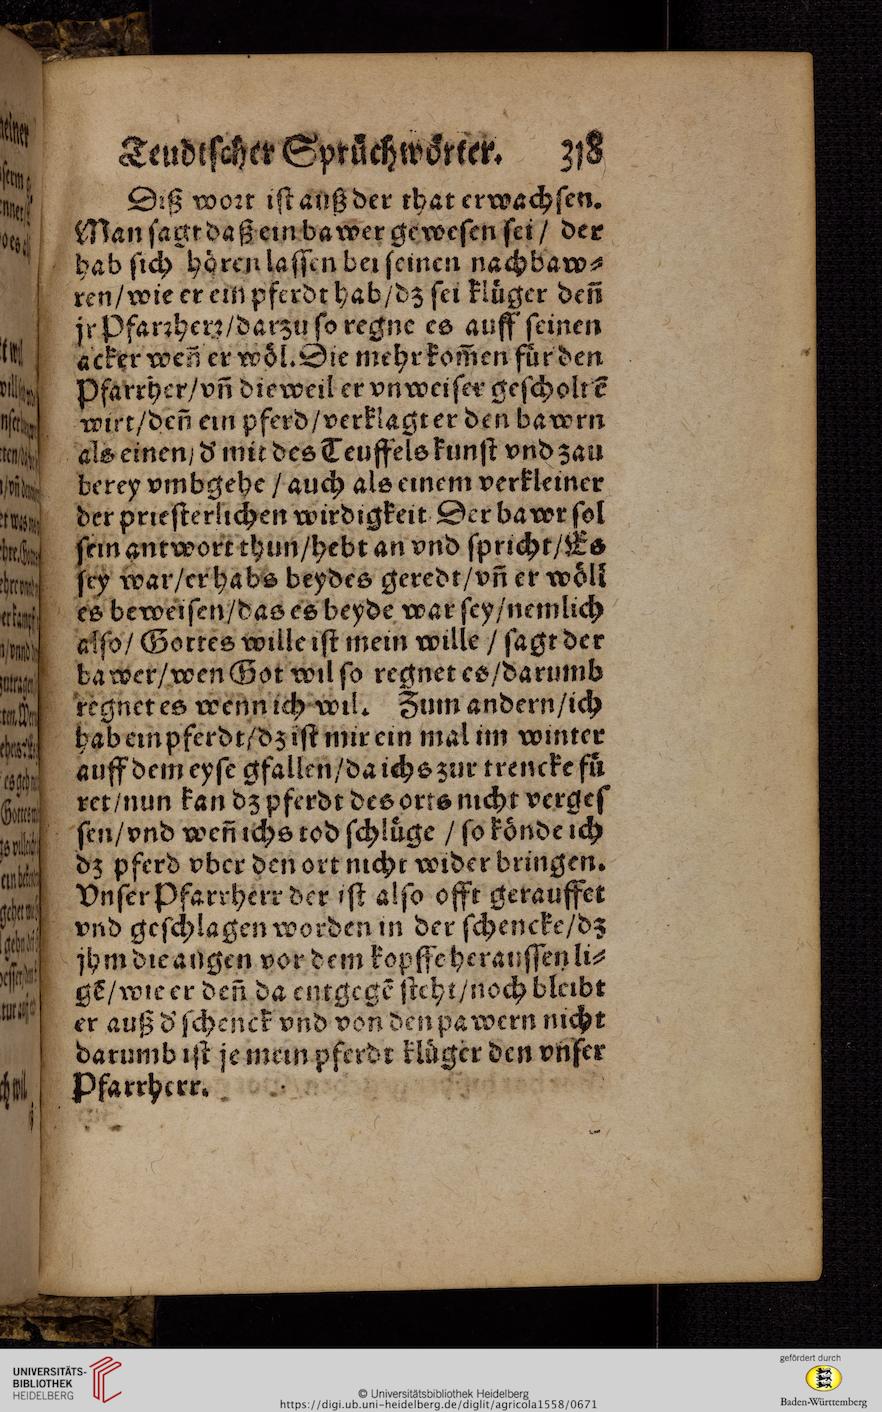 Teudtſcher Spruͤchwoͤrter. 318
Diß wort iſt auß der that erwachſen.
Man ſagt daß ein bawer geweſen ſei / der
hab ſich hoͤren laſſen bei ſeinen nachbaw⸗
ren/wie er ein pferdt hab/dz ſei kluͤger deñ
jr Pfarrherr/darzu ſo regne es auff ſeinen
acker weñ er woͤl. Die mehr kom̃en fuͤr den
Pfarrher/vñ dieweil er vnweiſer geſcholtẽ
wirt/deñ ein pferd/verklagt er den bawrn
als einen/ d' mit des Teuffels kunſt vnd zau
berey vmbgehe / auch als einem verkleiner
der prieſterlichen wirdigkeit Der bawr ſol
ſein antwort thun/hebt an vnd ſpricht/Es
ſey war/er habs beydes geredt/vñ er woͤll
es beweiſen/das es beyde war ſey/nemlich
alſo/ Gottes wille iſt mein wille / ſagt der
bawer/wen Got wil ſo regnet es/darumb
regnet es wenn ich wil. Zum andern/ich
hab ein pferdt/dz iſt mir ein mal im winter
auff dem eyſe gfallen/da ichs zur trencke fuͤ
ret/nun kan dz pferdt des orts nicht vergeſ
ſen/vnd weñ ichs tod ſchluͤge / ſo koͤnde ich
dz pferd vber den ort nicht wider bringen.
Vnſer Pfarrherr der iſt alſo offt gerauffet
vnd geſchlagen worden in der ſchencke/dz
jhm die augen vor dem kopffe herauſſen li⸗
gẽ/wie er deñ da entgegẽ ſteht/noch bleibt
er auß d' ſchenck vnd von den pawern nicht
darumb iſt je mein pferdt kluͤger den vnſer
Pfarrherr.
UNIVERSITÄTS-
BIBLIOTHEK
HEIDELBERG
© Universitätsbibliothek Heidelberg
https://digi.ub.uni-heidelberg.de/diglit/agricola1558/0671
gefördert durch
Baden-Württemberg